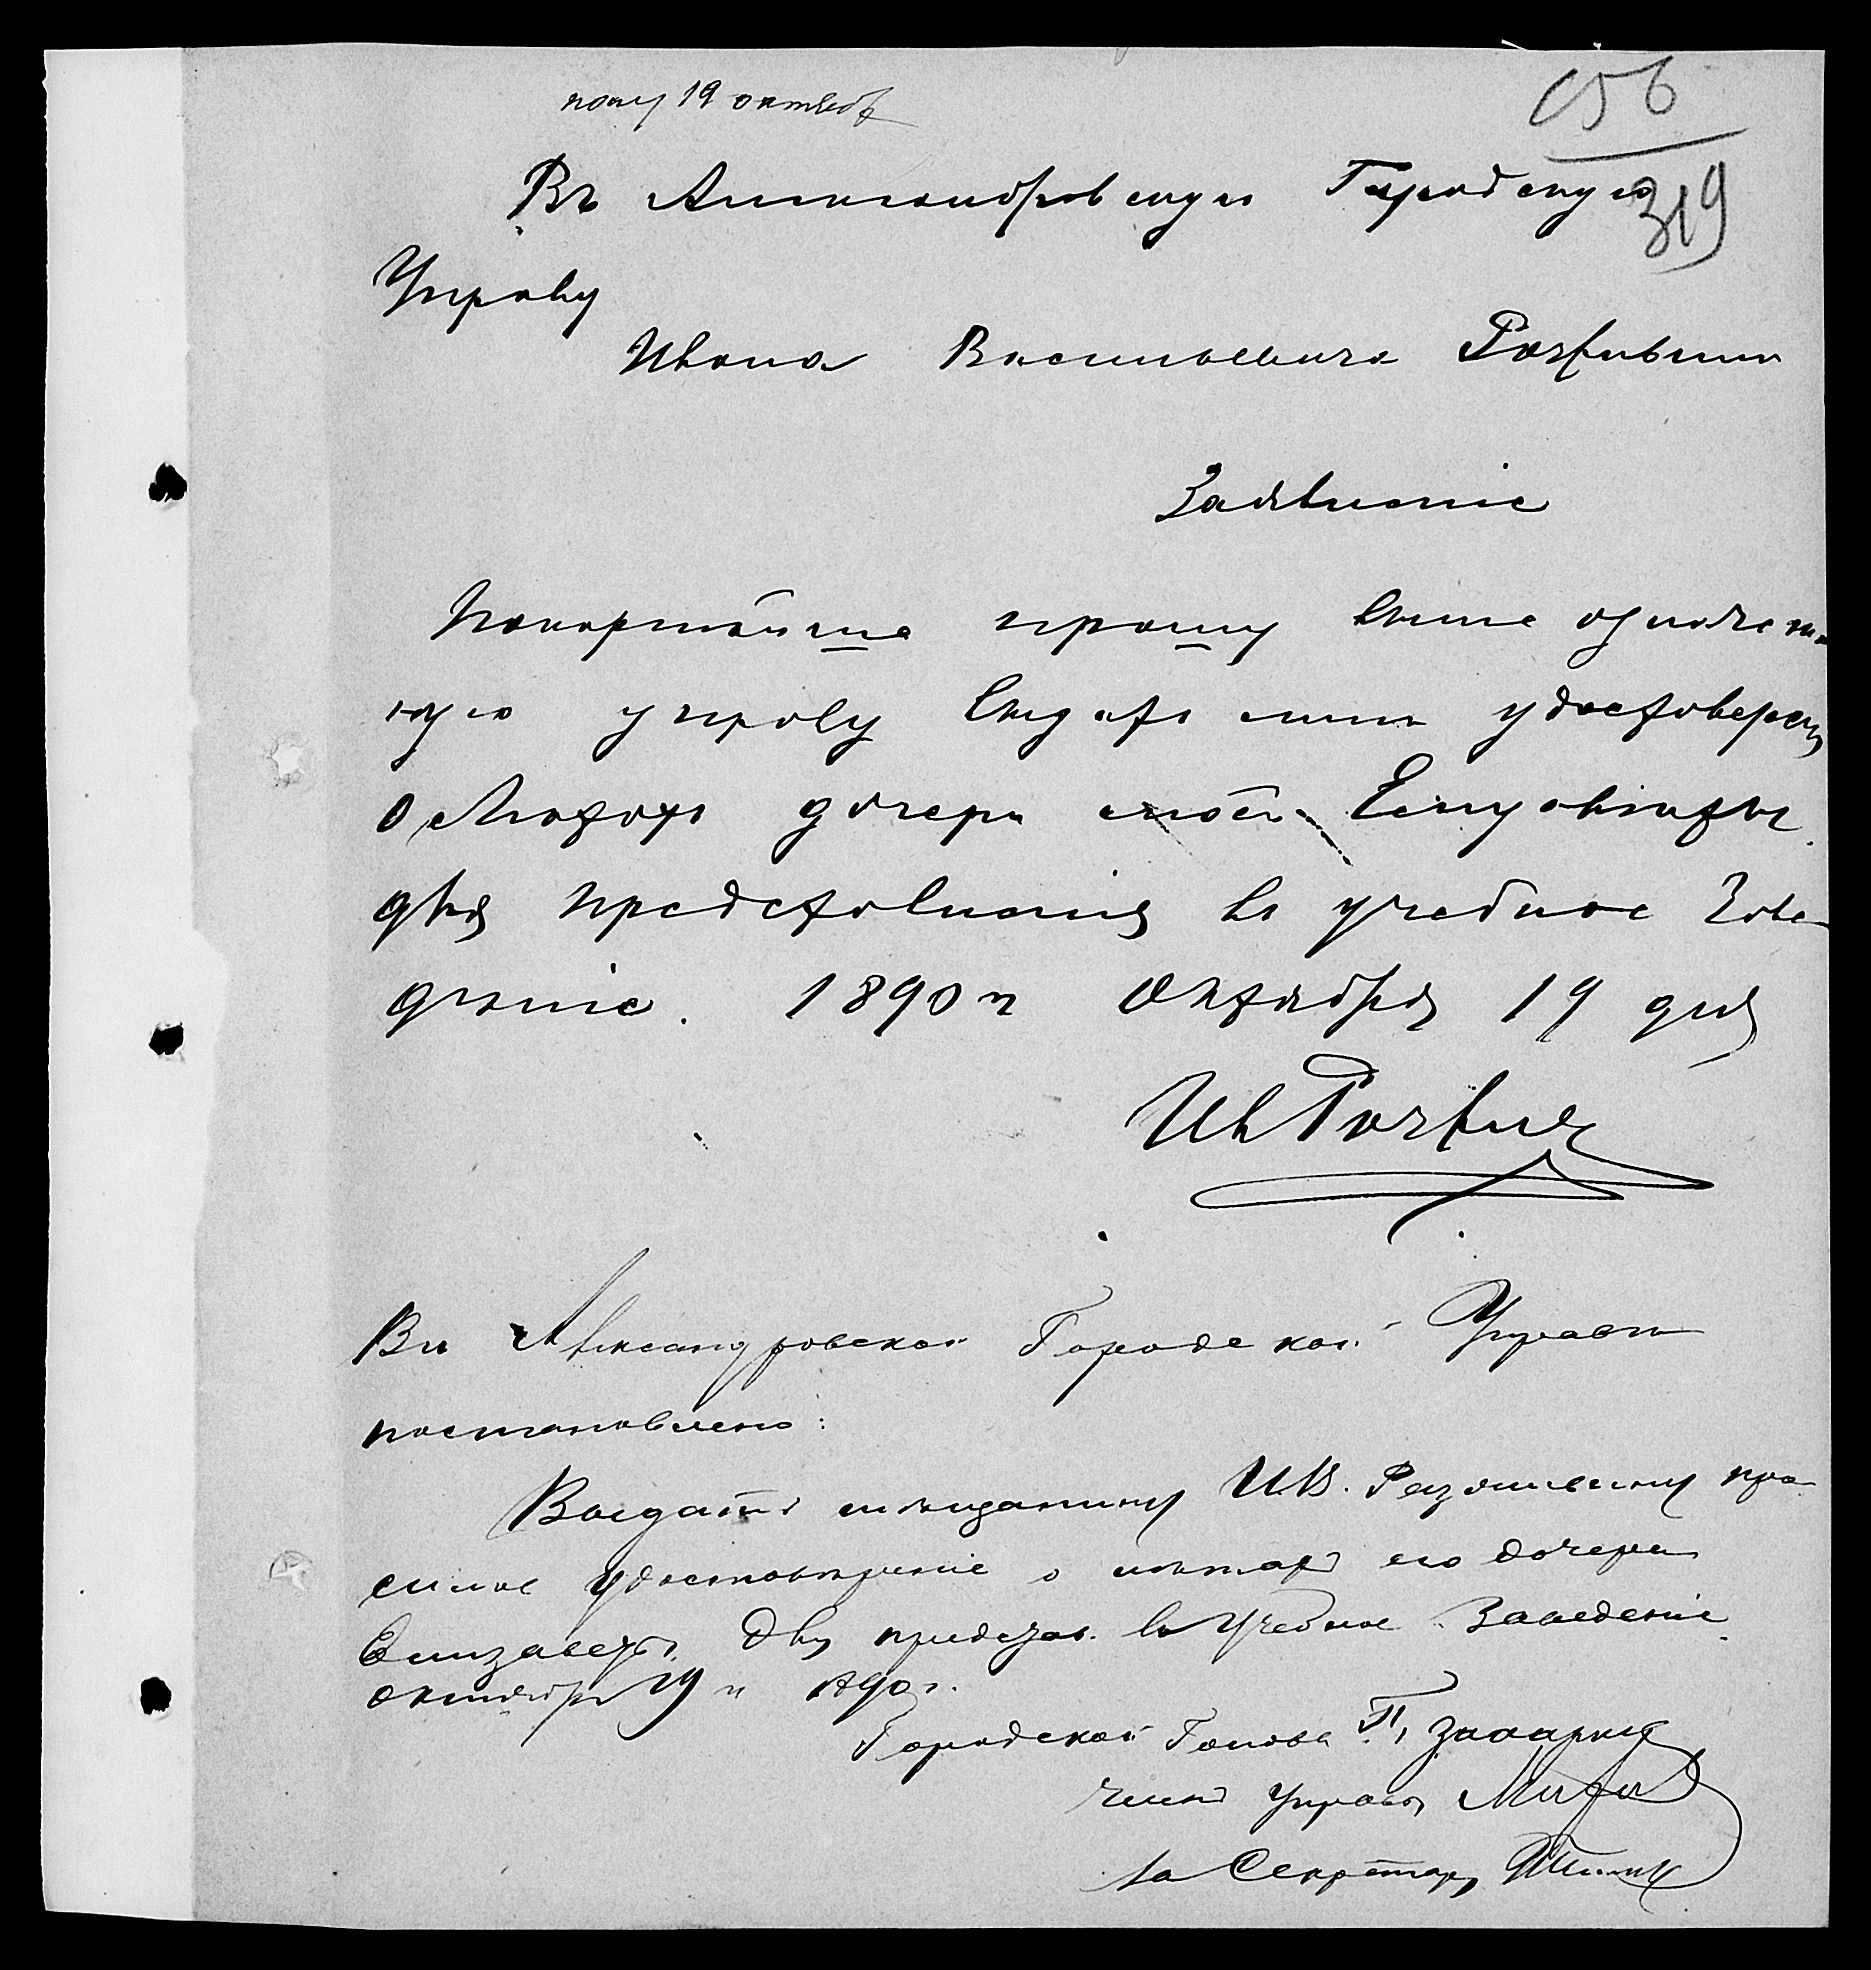 пол. 19 октябр
656
319
Въ Александровскую Городскую
Управу
Ивана Васильевича
Заявленіе
Покорнейше прошу
ную управу выдать мне удостоверен
о летахъ дочери моей Елизаветы
для представленія въ учебное Заве-
деніе. 1890 г Октября 19 дня
Ив
Въ Александровской Городской Управѣ
постановлено:
Выдать мѣщанину И.В. про-
симое удостовѣреніе о лѣтахъ его дочери
Елизаветы для представ. въ Учебное Заведеніе
октября 19 д 1890 г.
Городской Голова П. Захарин
Членъ Управы
За Секретаря